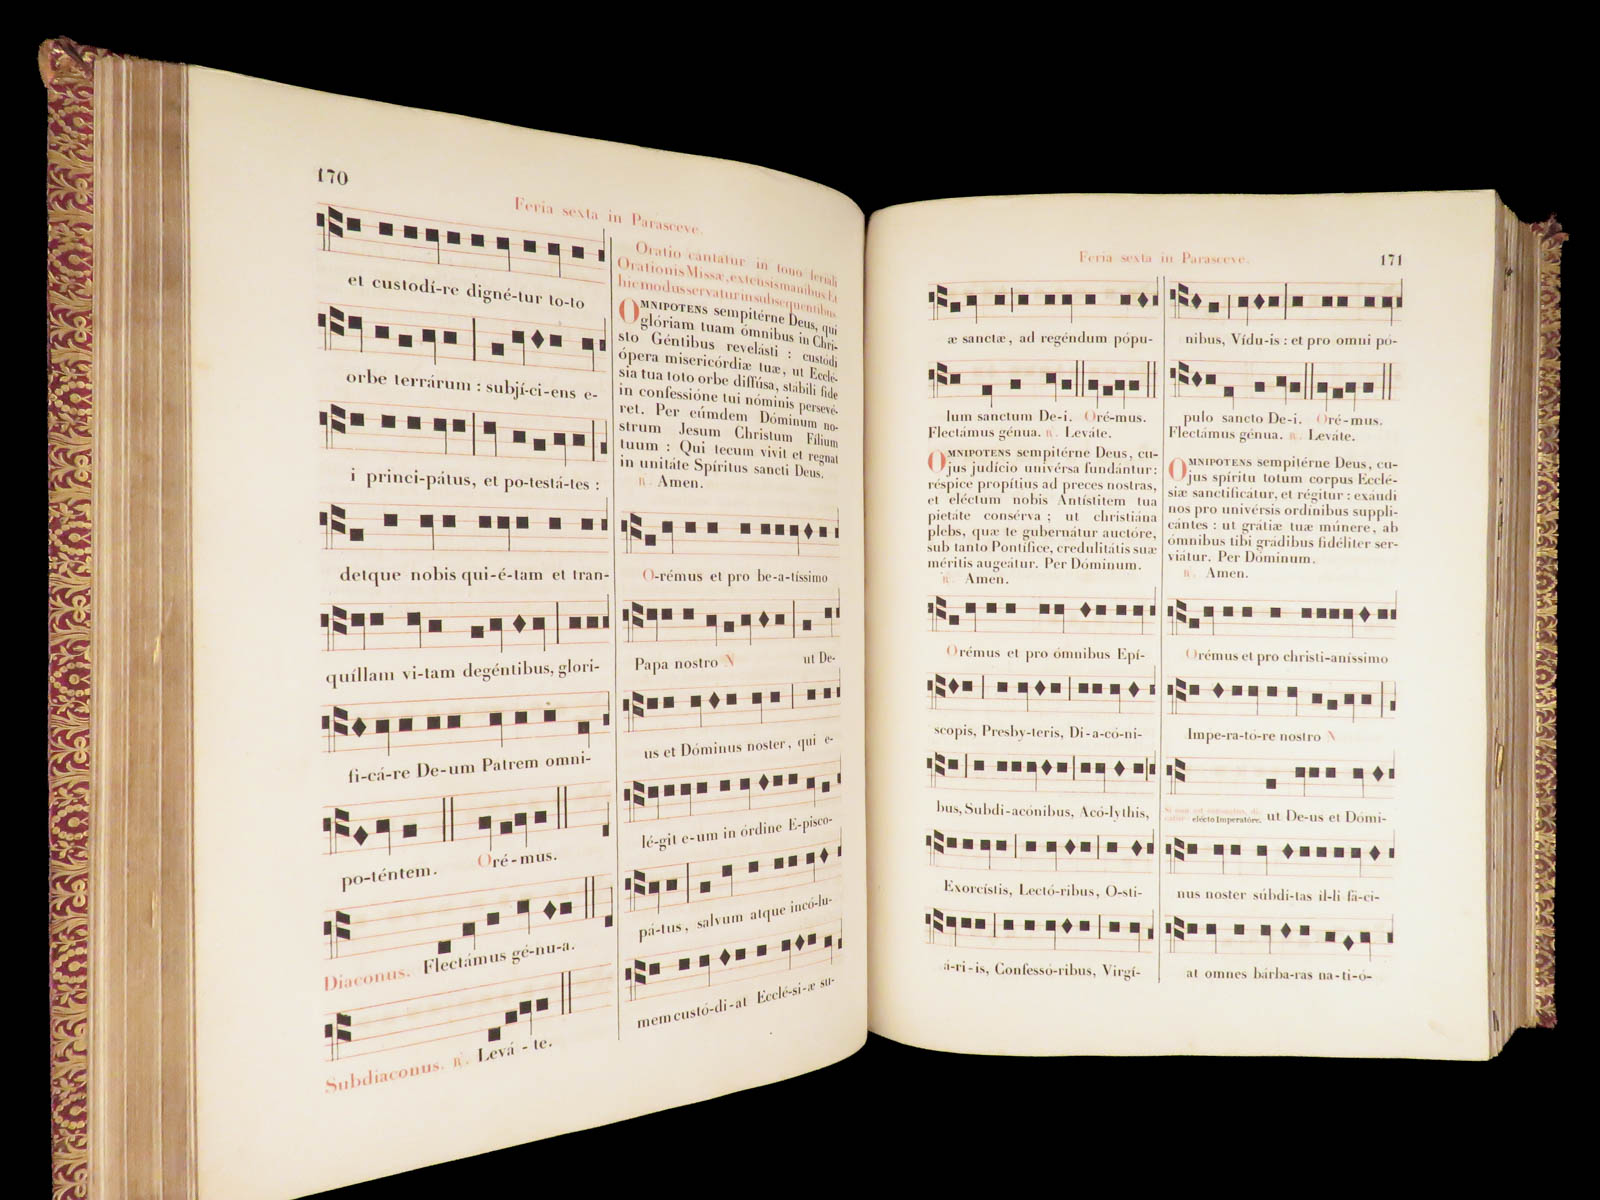 170
Feria sexta in Parasceve.
et custodí-re digné-tur to-to
orbe terrárum : subjí-ci-ens e-
i princi-pátus, et po-testá-tes :
detque nobis qui-é-tam et tran-
quíllam vi-tam degéntibus, glori-
fi-cá-re De-um Patrem omni-
po-téntem. Oré-mus.
Diaconus. Flectámus gé-nu-a.
Subdiaconus. ℟. Levá - te.
Oratio cantatur in tono feriali
Orationis Missæ, extensis manibus. Et
hic modus servatur in subsequentibus.
OMNIPOTENS sempitérne Deus, qui
glóriam tuam ómnibus in Chri-
sto Géntibus revelásti : custódi
ópera misericórdiæ tuæ, ut Ecclé-
sia tua toto orbe diffúsa, stábili fide
in confessióne tui nóminis persevé-
ret. Per eúmdem Dóminum no-
strum Jesum Christum Fílium
tuum : Qui tecum vivit et regnat
in unitáte Spíritus sancti Deus.
℟. Amen.
O-rémus et pro be-a-tíssimo
Papa nostro N ut De-
us et Dóminus noster, qui e-
lé-git e-um in órdine E-pisco-
pá-tus, salvum atque incó-lu-
mem custó-di-at Ecclé-si-æ su-
Feria sexta in Parasceve.
171
æ sanctæ, ad regéndum pópu-
lum sanctum De-i. Oré-mus.
Flectámus génua. ℟. Leváte.
OMNIPOTENS sempitérne Deus, cu-
jus judício univérsa fundántur :
réspice propítius ad preces nostras,
et eléctum nobis Antístitem tua
pietáte consérva ; ut christiána
plebs, quæ te gubernátur auctóre,
sub tanto Pontífice, credulitátis suæ
méritis augeátur. Per Dóminum.
℟. Amen.
Orémus et pro ómnibus Epí-
scopis, Presby-teris, Di-a-có-ni-
bus, Subdi-acónibus, Acó-lythis,
Exorcístis, Lectó-ribus, O-sti-
á-ri-is, Confessó-ribus, Virgí-
nibus, Vídu-is : et pro omni pó-
pulo sancto De-i. Oré-mus.
Flectámus génua. ℟. Leváte.
OMNIPOTENS sempitérne Deus, cu-
jus spíritu totum corpus Ecclé-
siæ sanctificátur, et régitur : exáudi
nos pro univérsis ordínibus suppli-
cántes : ut grátiæ tuæ múnere, ab
ómnibus tibi grádibus fidéliter ser-
viátur. Per Dóminum.
℟. Amen.
Orémus et pro christi-aníssimo
Impe-ra-tó-re nostro N
Si non est coronatus, di-
catur elécto Imperatóre. ut De-us et Dómi-
nus noster súbdi-tas il-li fá-ci-
at omnes bárba-ras na-ti-ó-